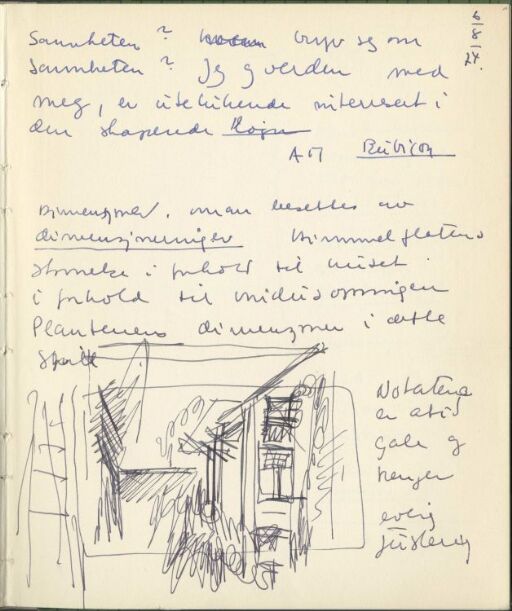 6/8/74.
Sannheten? bryr seg om
Sannheten? Jeg g verden med
meg, er utelukkende interessert i
den skapende løgn
AM Rubicon
Dimensjoner. man besettes av
dimensjoneringer Himmelflatens
størrelse i forhold til huset
i forhold til vindusåpningen
Plantenes dimensjoner i dette
Spill
Notatene
er altid
gale g
trenger
evig
justering